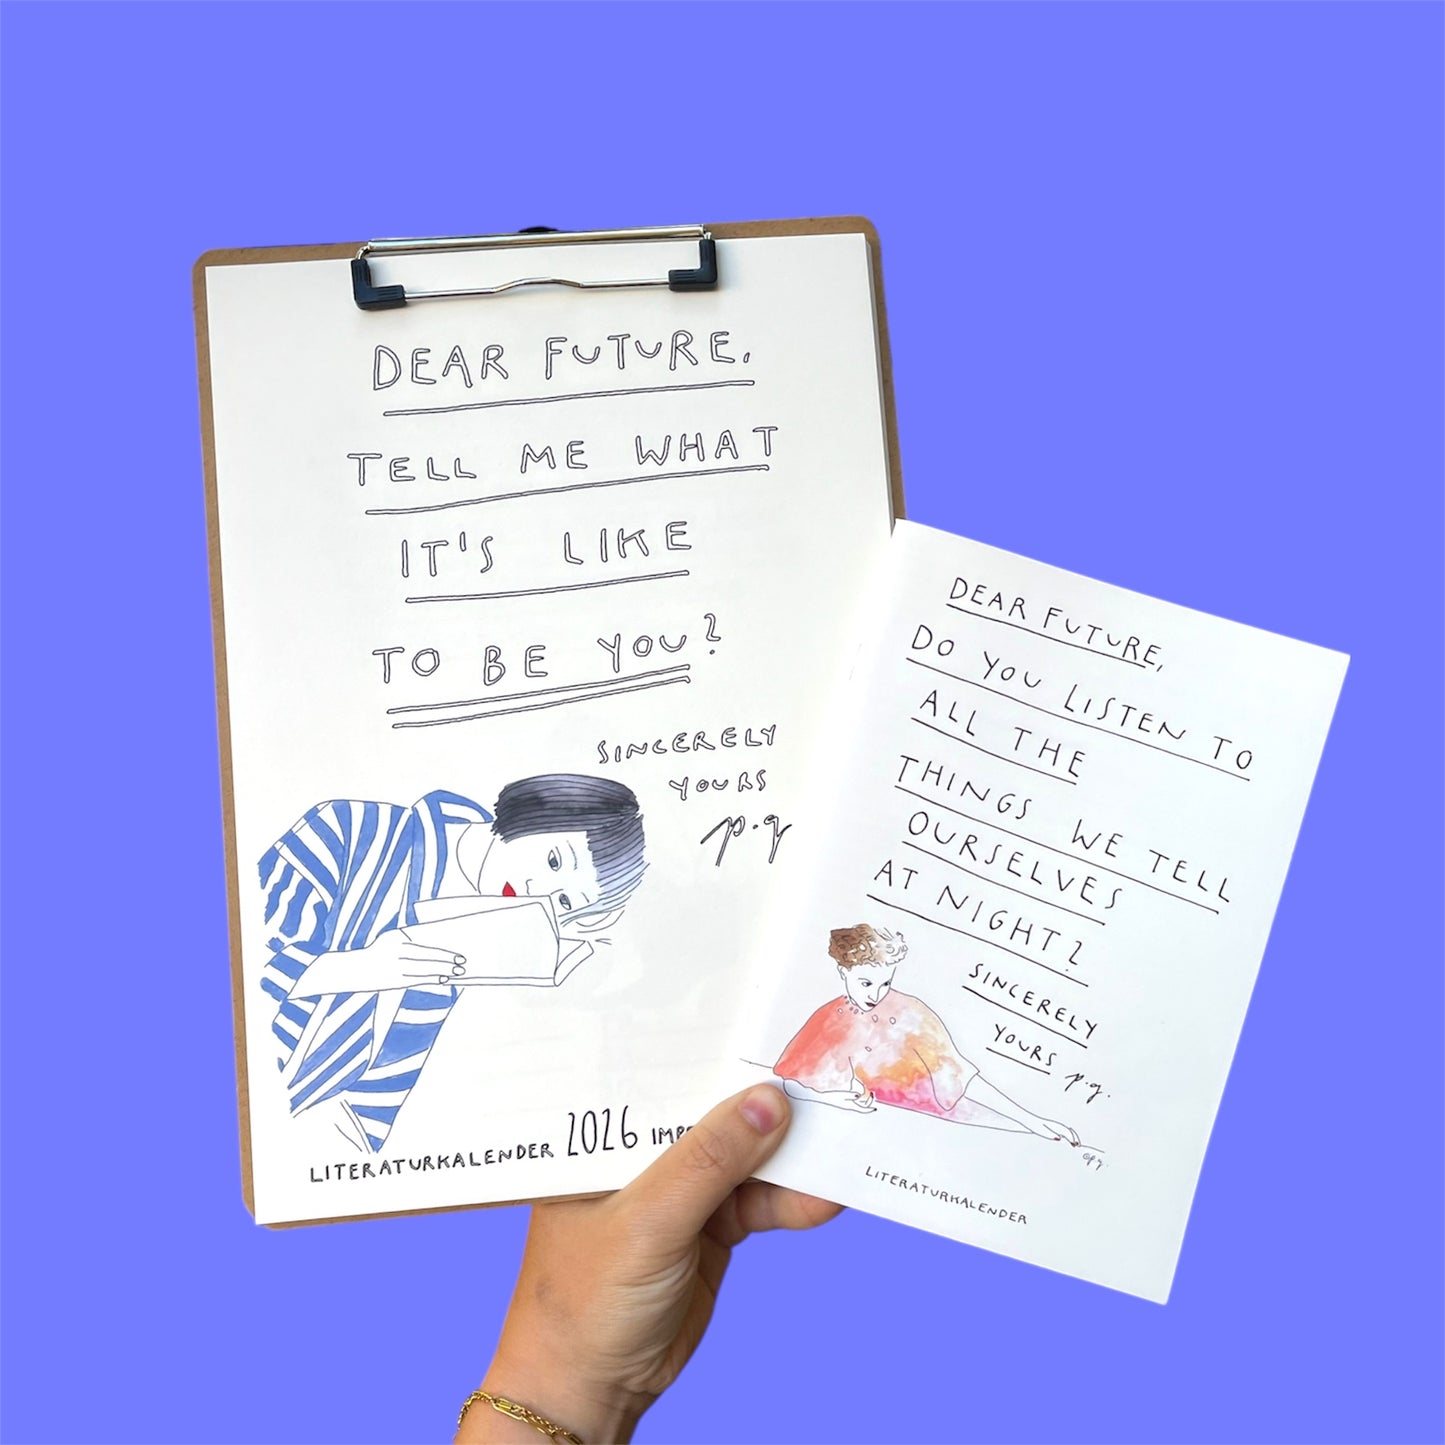 DEAR FUTURE,
TELL ME WHAT
IT'S LIKE
TO BE YOU?
SINCERELY
YOURS
p.g
LITERATURKALENDER 2026
DEAR FUTURE,
DO YOU LISTEN TO
ALL THE
THINGS WE TELL
OURSELVES
AT NIGHT?
SINCERELY
YOURS p.g.
LITERATURKALENDER